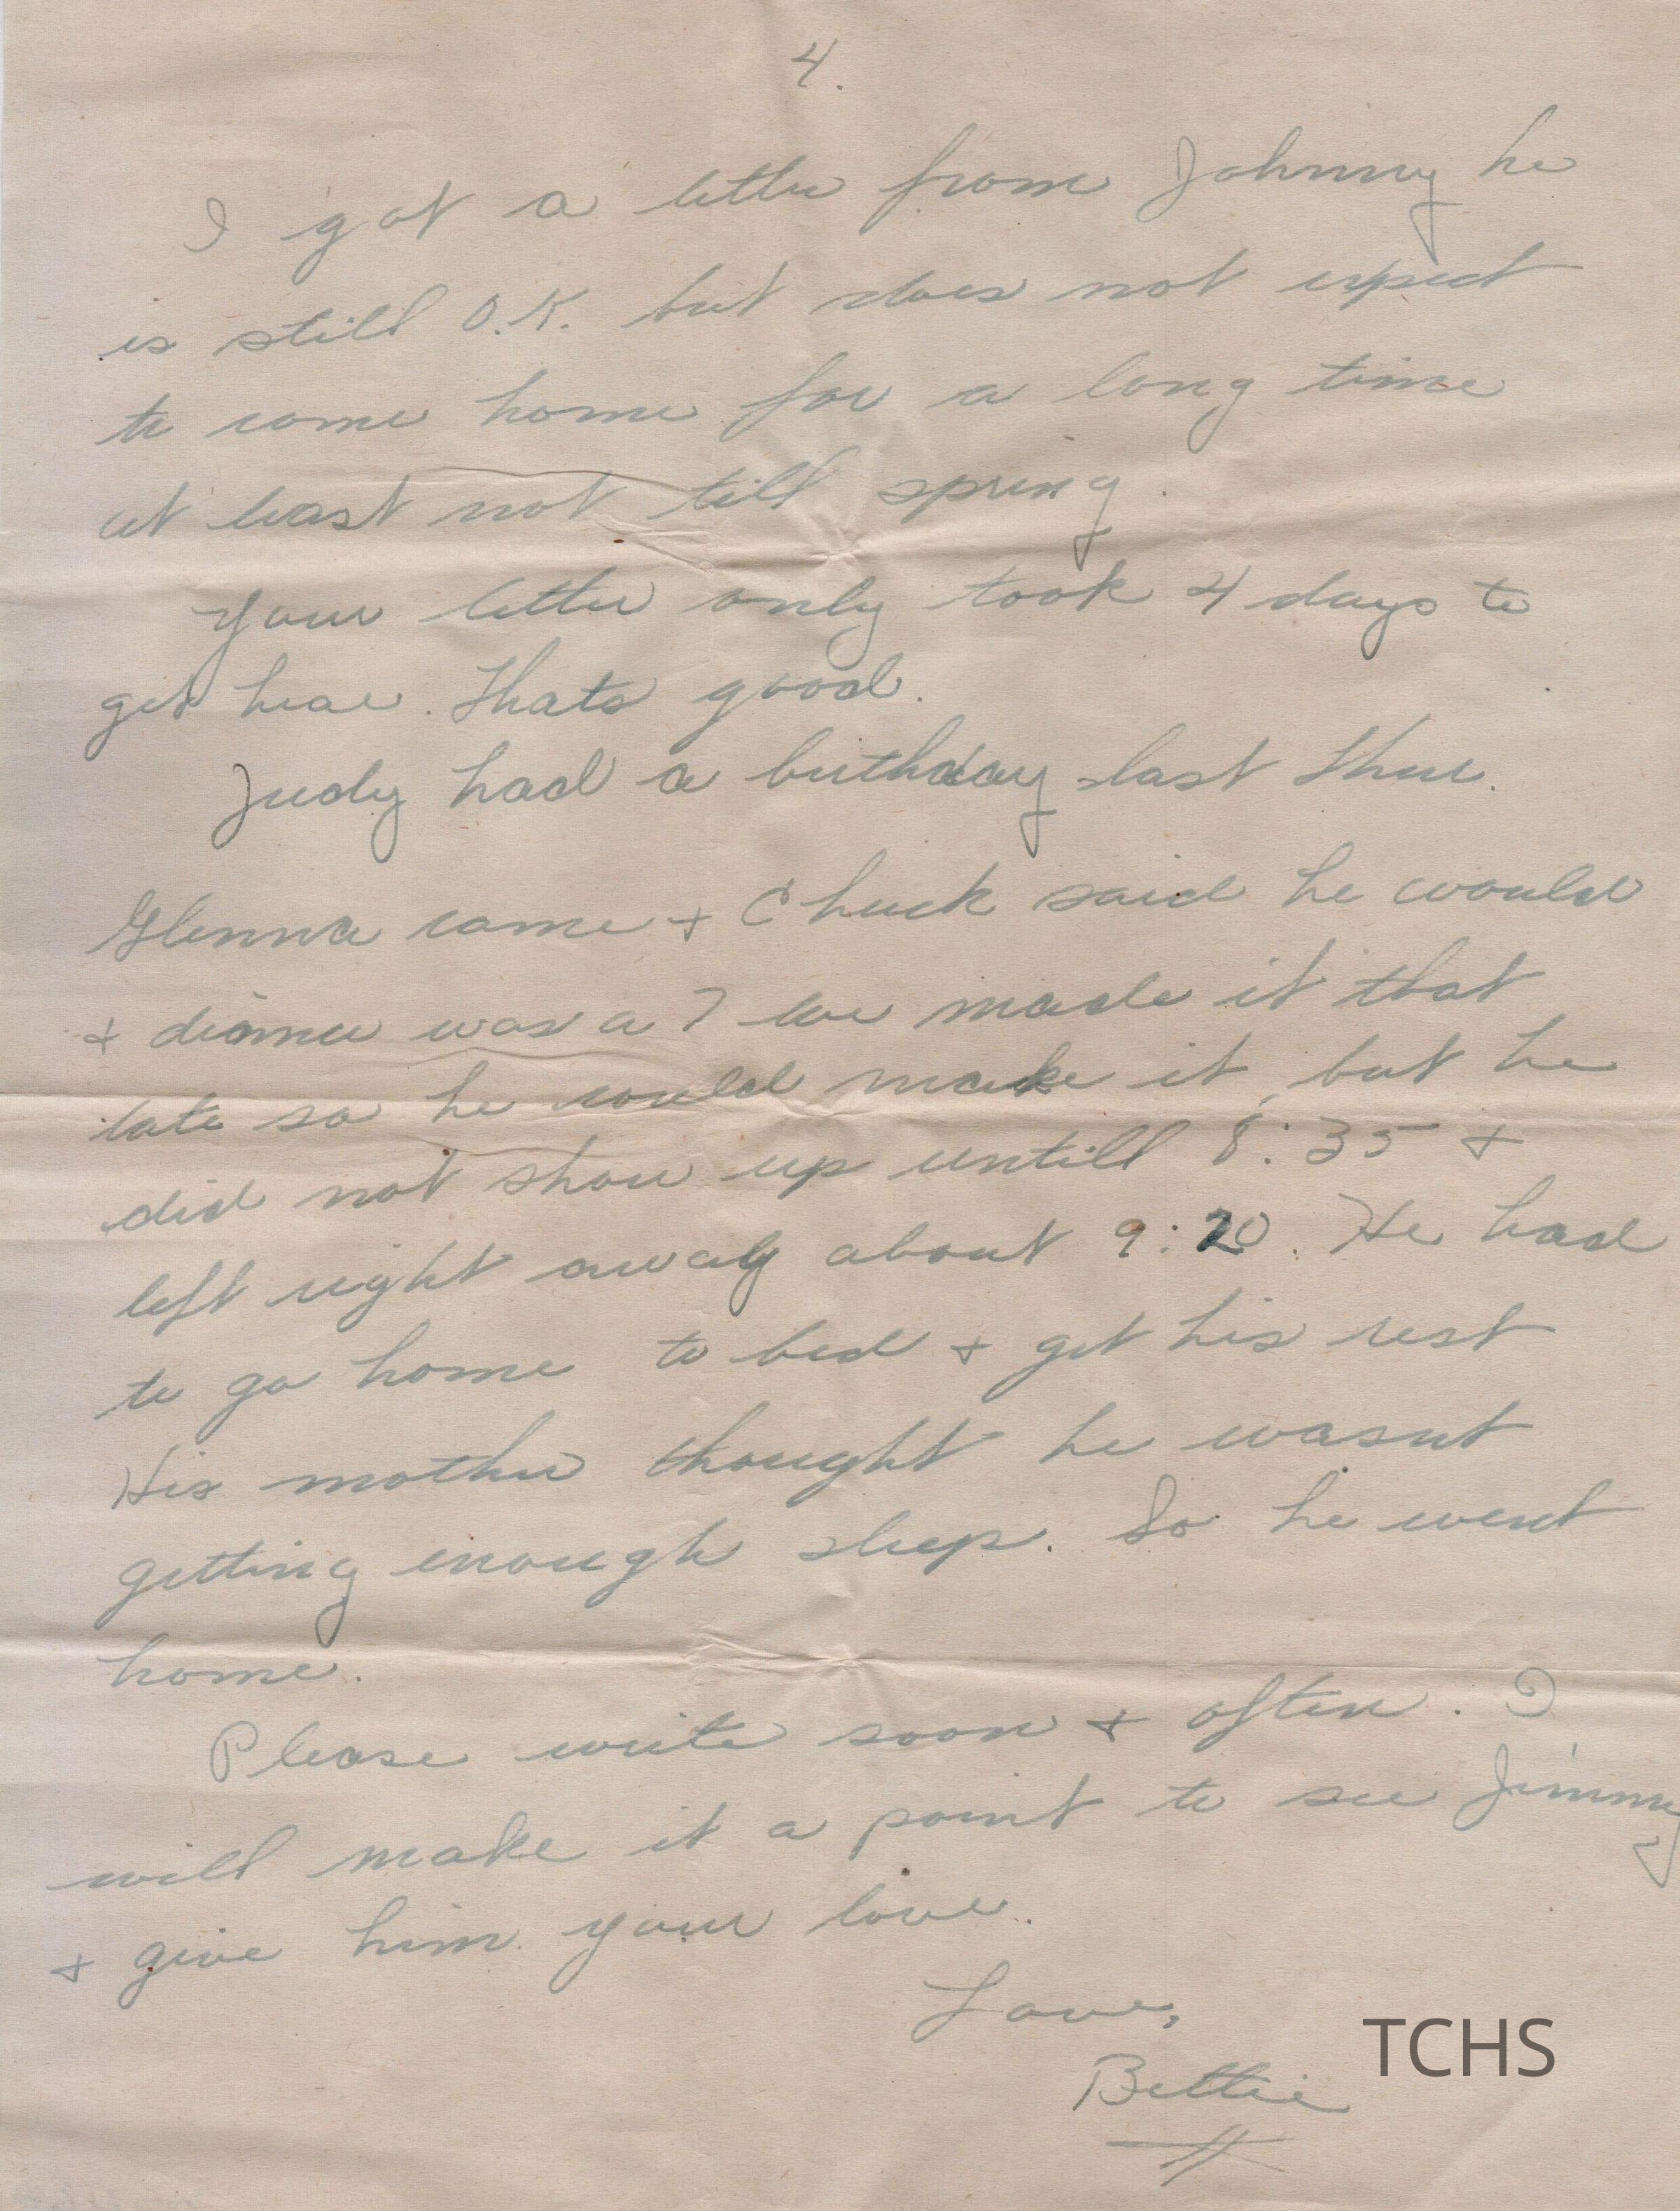 4.
I got a letter from Johnny he
is still O.K. but does not expect
to come home for a long time
at least not till spring.
Your letter only took 4 days to
get hear. Thats good.
Judy had a birthday last Thur.
Glenna came + Chuck said he would
+ dinner was a 7 we made it that
late so he could make it, but he
did not show up untill 8:35 +
left right away about 9:20. He had
to go home to bed + get his rest
His mother thought he wasnt
getting enough sleep. So he went
home.
Please write soon + often. I
will make it a point to see Jimmy
+ give him your love.
Love,
Bettie
TCHS